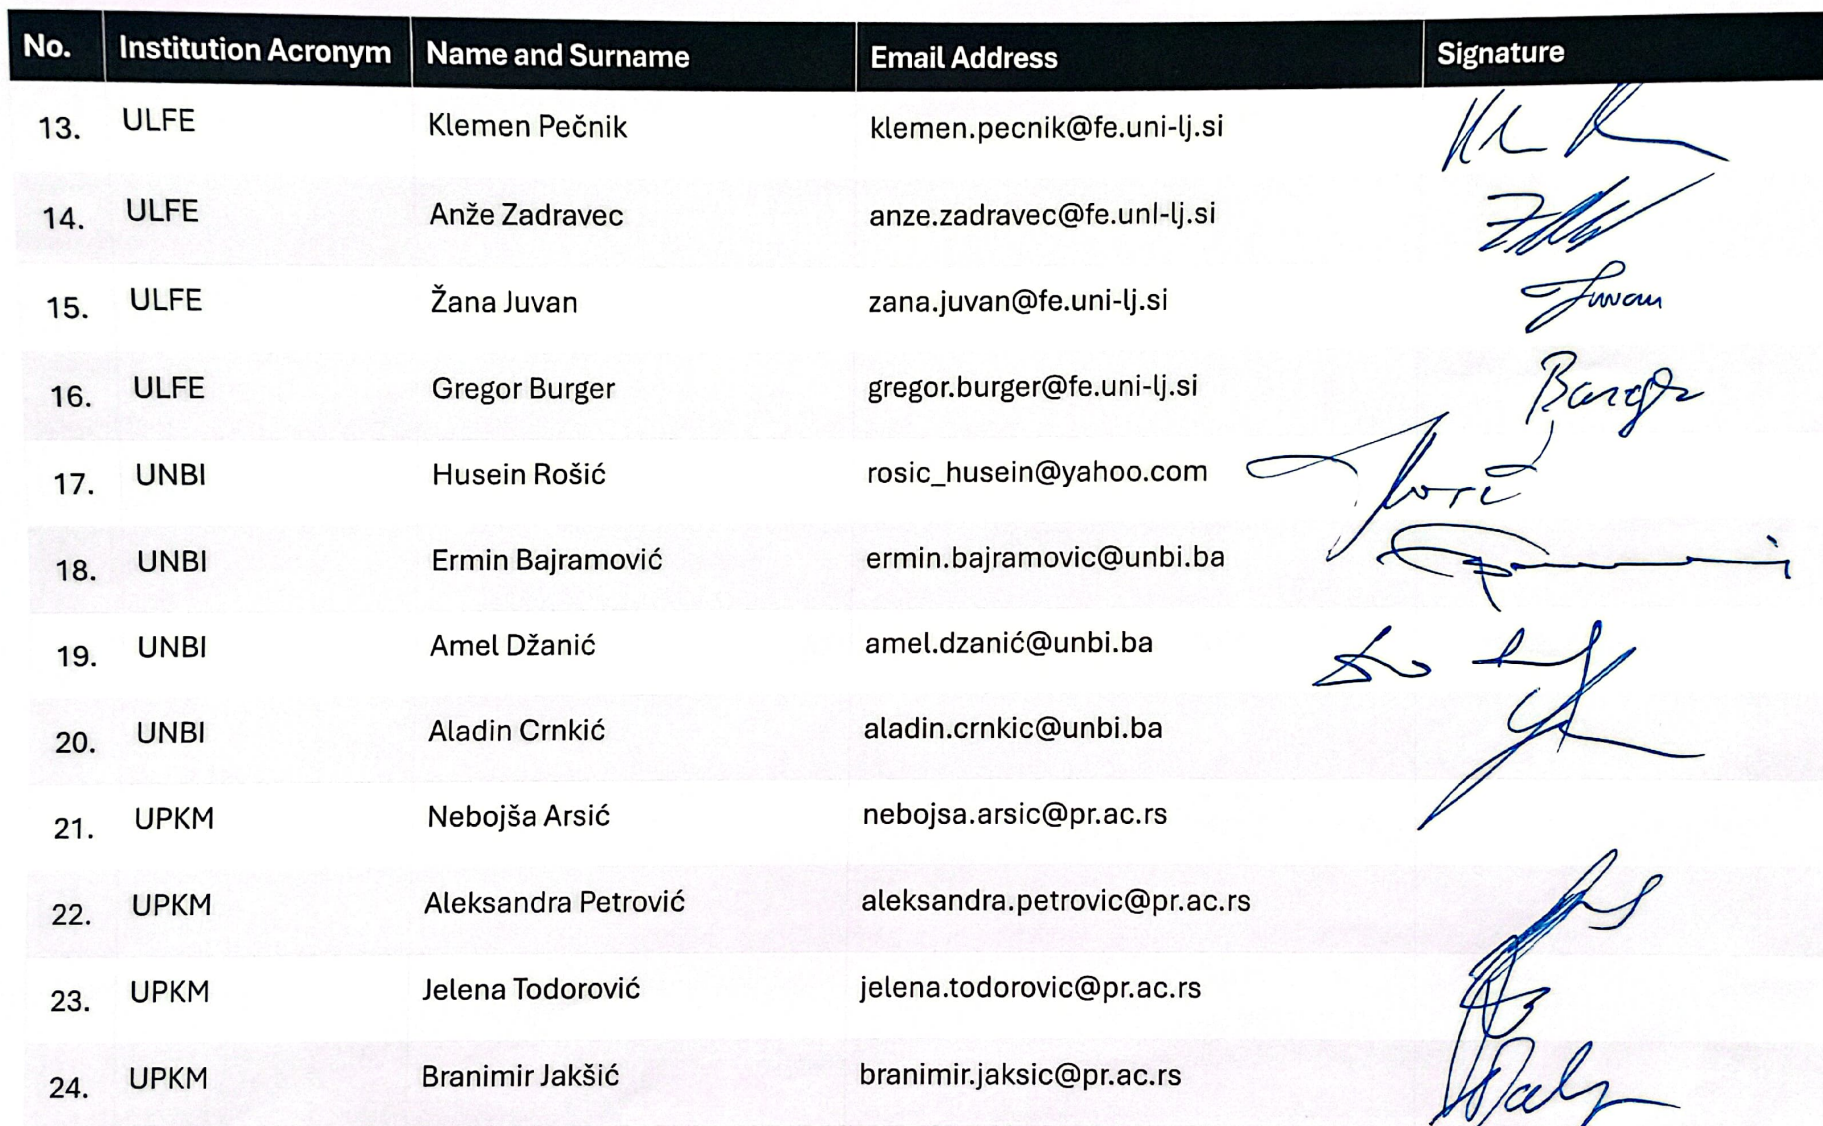 No. Institution Acronym Name and Surname Email Address Signature
13. ULFE Klemen Pečnik klemen.pecnik@fe.uni-lj.si
14. ULFE Anže Zadravec anze.zadravec@fe.unl-lj.si
15. ULFE Žana Juvan zana.juvan@fe.uni-lj.si Juvan
16. ULFE Gregor Burger gregor.burger@fe.uni-lj.si Burger
17. UNBI Husein Rošić rosic_husein@yahoo.com
18. UNBI Ermin Bajramović ermin.bajramovic@unbi.ba
19. UNBI Amel Džanić amel.dzanić@unbi.ba
20. UNBI Aladin Crnkić aladin.crnkic@unbi.ba
21. UPKM Nebojša Arsić nebojsa.arsic@pr.ac.rs
22. UPKM Aleksandra Petrović aleksandra.petrovic@pr.ac.rs
23. UPKM Jelena Todorović jelena.todorovic@pr.ac.rs
24. UPKM Branimir Jakšić branimir.jaksic@pr.ac.rs